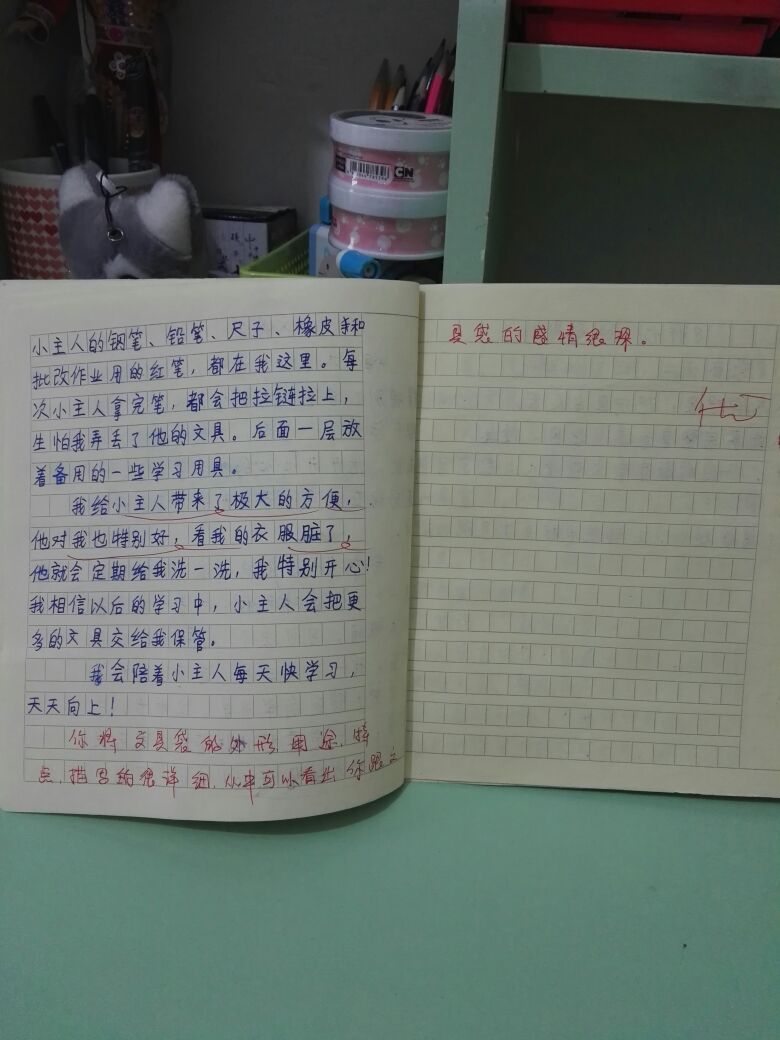 小主人的钢笔、铅笔、尺子、橡皮和
批改作业用的红笔，都在我这里。每
次小主人拿完笔，都会把拉链拉上，
生怕我弄丢了他的文具。后面一层放
着备用的一些学习用具。
我给小主人带来了极大的方便，
他对我也特别好，看我的衣服脏了，
他就会定期给我洗一洗，我特别开心！
我相信以后的学习中，小主人会把更
多的文具交给我保管。
我会陪着小主人每天快学习，
天天向上！
你将文具袋的外形用途、特
点，描写的很详细，从中可以看出你跟文
具袋的感情很深。
CN